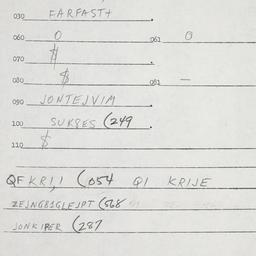 030 FARFAST+
060 0 061 0
070 $
080 $ 081 —
090 JONTEJVIM
100 SUKSES (249
110 $
QFKRI,! (054 QI KRIJE
(568
JONKIPER (287